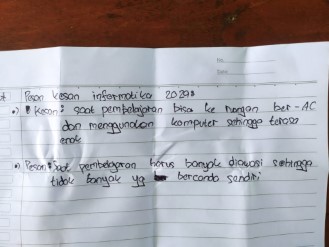 No.
Date
Pesan kesan informatika
•) Kesan: saat pembelajaran bisa ke ruangan ber-AC
dan menggunakan komputer sehingga terasa
enak
•) Pesan: saat pembelajaran harus banyak diawasi sehingga
tidak banyak yg bercanda sendiri